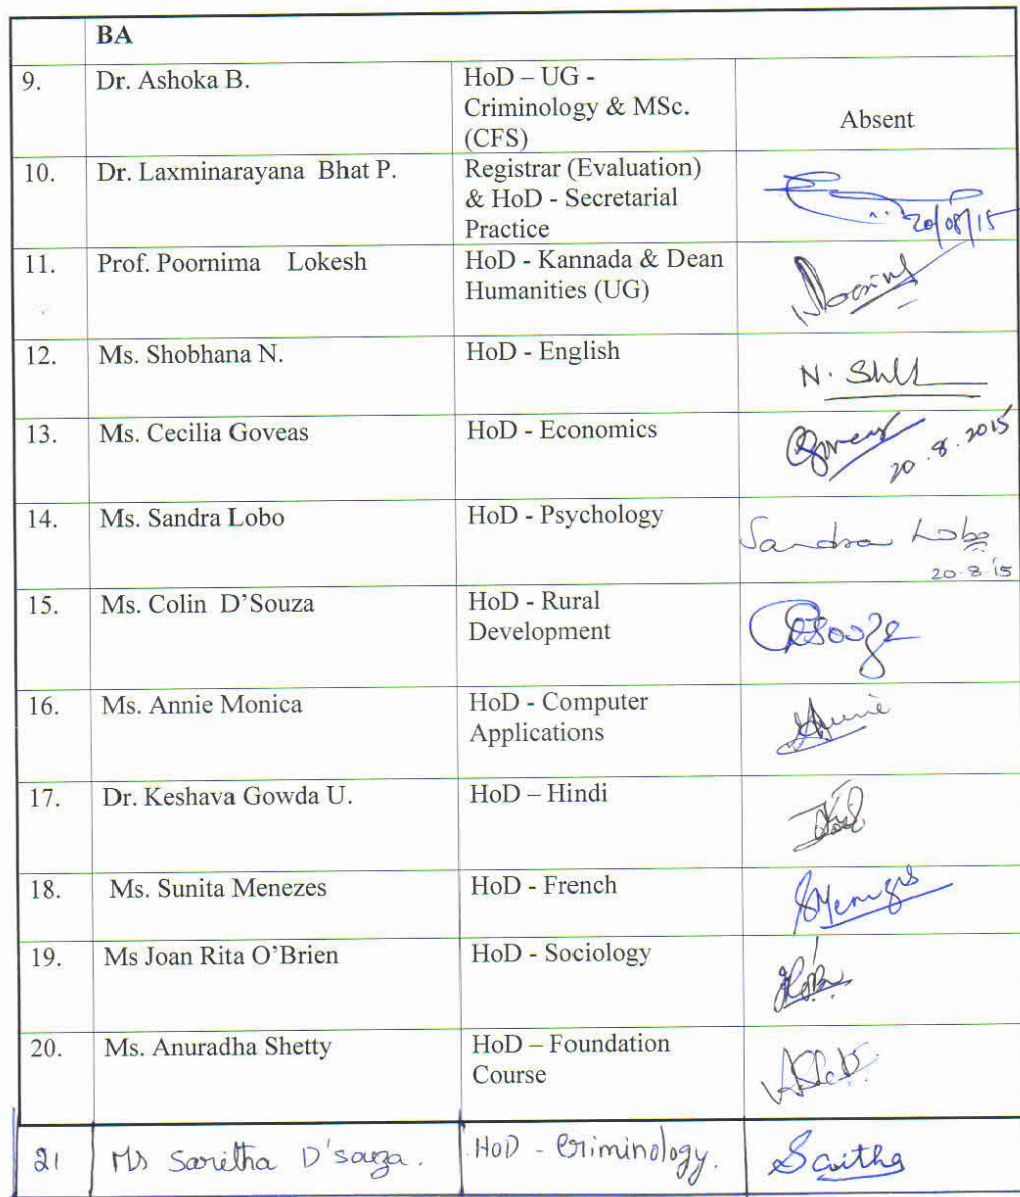 BA
9. Dr. Ashoka B. HoD – UG -
Criminology & MSc.
(CFS) Absent
10. Dr. Laxminarayana Bhat P. Registrar (Evaluation)
& HoD - Secretarial
Practice 20/08/15
11. Prof. Poornima Lokesh HoD - Kannada & Dean
Humanities (UG)
12. Ms. Shobhana N. HoD - English
13. Ms. Cecilia Goveas HoD - Economics
20.8.2015
14. Ms. Sandra Lobo HoD - Psychology Sandra Lobo
20.8.15
15. Ms. Colin D’Souza HoD - Rural
Development
16. Ms. Annie Monica HoD - Computer
Applications
17. Dr. Keshava Gowda U. HoD – Hindi
18. Ms. Sunita Menezes HoD - French
19. Ms Joan Rita O’Brien HoD - Sociology
20. Ms. Anuradha Shetty HoD – Foundation
Course
21 Ms Saritha D'souza. HoD - Criminology.